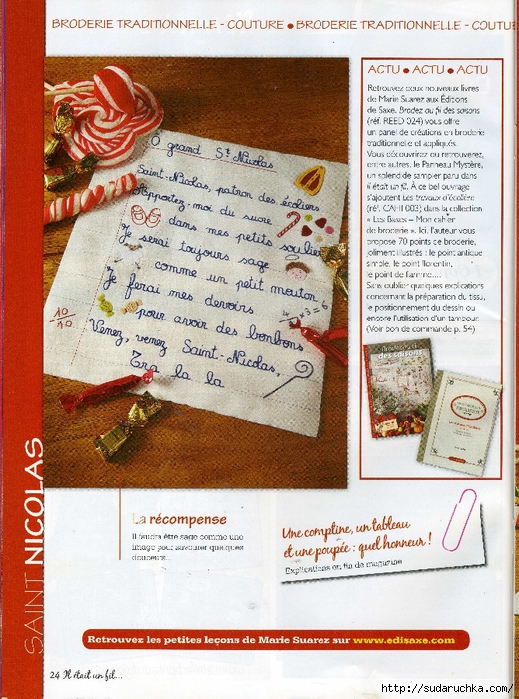 BRODERIE TRADITIONNELLE - COUTURE ● BRODERIE TRADITIONNELLE - COUTU
O grand St Nicolas
Saint-Nicolas, patron des écoliers
Apportez-moi du sucre
dans mes petits soulier
Je serai toujours sage
comme un petit mouton
Je ferai mes devoirs
pour avoir des bonbons
Venez, venez Saint-Nicolas,
Tra la la
10/10
×3=6
ACTU ● ACTU ● ACTU
Retrouvez deux nouveaux livres
de Marie Suarez aux Éditions
de Saxe. Brodez au fil des saisons
(réf. REED 024) vous offre
un panel de créations en broderie
traditionnelle et appliqués.
Vous découvrirez ou retrouverez,
entre autres, le Panneau Mystère,
un splendide sampler paru dans
Il était un fil. À ce bel ouvrage
s'ajoutent Les travaux d'écolière
(réf. CAHI 003) dans la collection
« Les Bases – Mon cahier
de broderie ». Ici, l'auteur vous
propose 70 points de broderie,
joliment illustrés : le point antique
simple, le point florentin,
le point de flamme....
Sans oublier quelques explications
concernant la préparation du tissu,
le positionnement du dessin ou
encore l'utilisation d'un tambour.
(Voir bon de commande p. 54)
des saisons
SAINT NICOLAS
La récompense
Il faudra être sage comme une
image pour savourer quelques
douceurs...
Une comptine, un tableau
et une poupée : quel honneur !
Explications en fin de magazine
Retrouvez les petites leçons de Marie Suarez sur www.edisaxe.com
24 Il était un fil...
http://sudaruchka.com/